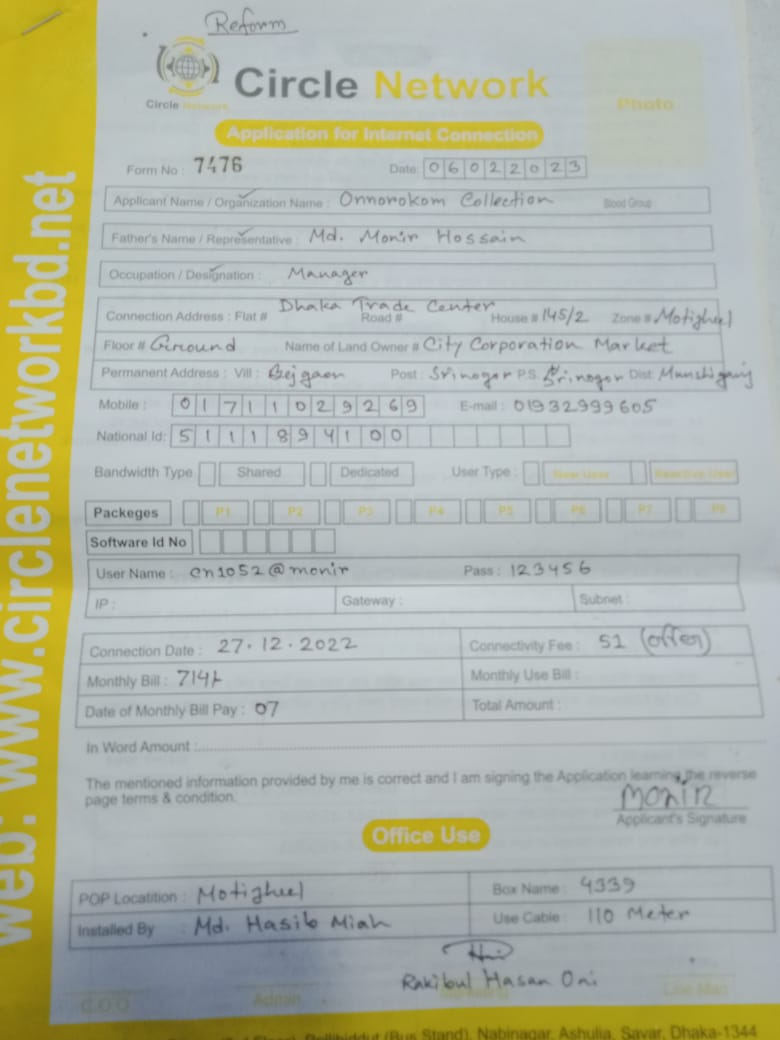 Reform
Circle Network
Circle Network
Photo
Application for Internet Connection
Form No : 7476 Date: 06022023
Applicant Name / Organization Name : Onnorokom Collection Blood Group
Father's Name / Representative : Md. Monir Hossain
Occupation / Designation : Manager
Connection Address : Flat # Dhaka Trade Center Road # House # 145/2 Zone # Motigheel
Floor # Ground Name of Land Owner # City Corporation Market
Permanent Address : Vill : Bejgaon Post : Srinogor P.S. Srinogor Dist: Munshigang
Mobile : 01711029269 E-mail : 01932999605
National Id: 5111894100
Bandwidth Type Shared Dedicated User Type : New User Reactive User
Packeges P1 P2 P3 P4 P5 P6 P7 P8
Software Id No
User Name : cn1052@monir Pass : 123456
IP : Gateway : Subnet :
Connection Date : 27.12.2022 Connectivity Fee : 51 (offer)
Monthly Bill : 714/- Monthly Use Bill :
Date of Monthly Bill Pay : 07 Total Amount :
In Word Amount :
The mentioned information provided by me is correct and I am signing the Application learning the reverse
page terms & condition.
MONIR
Applicant's Signature
Office Use
POP Locatition : Motigheel Box Name : 4339
Installed By : Md. Hasib Miah Use Cable : 110 Meter
Rakibul Hasan Oni
C.O.O Admin Line Man
(Bus Stand), Nabinagar, Ashulia, Savar, Dhaka-1344
web: www.circlenetworkbd.net